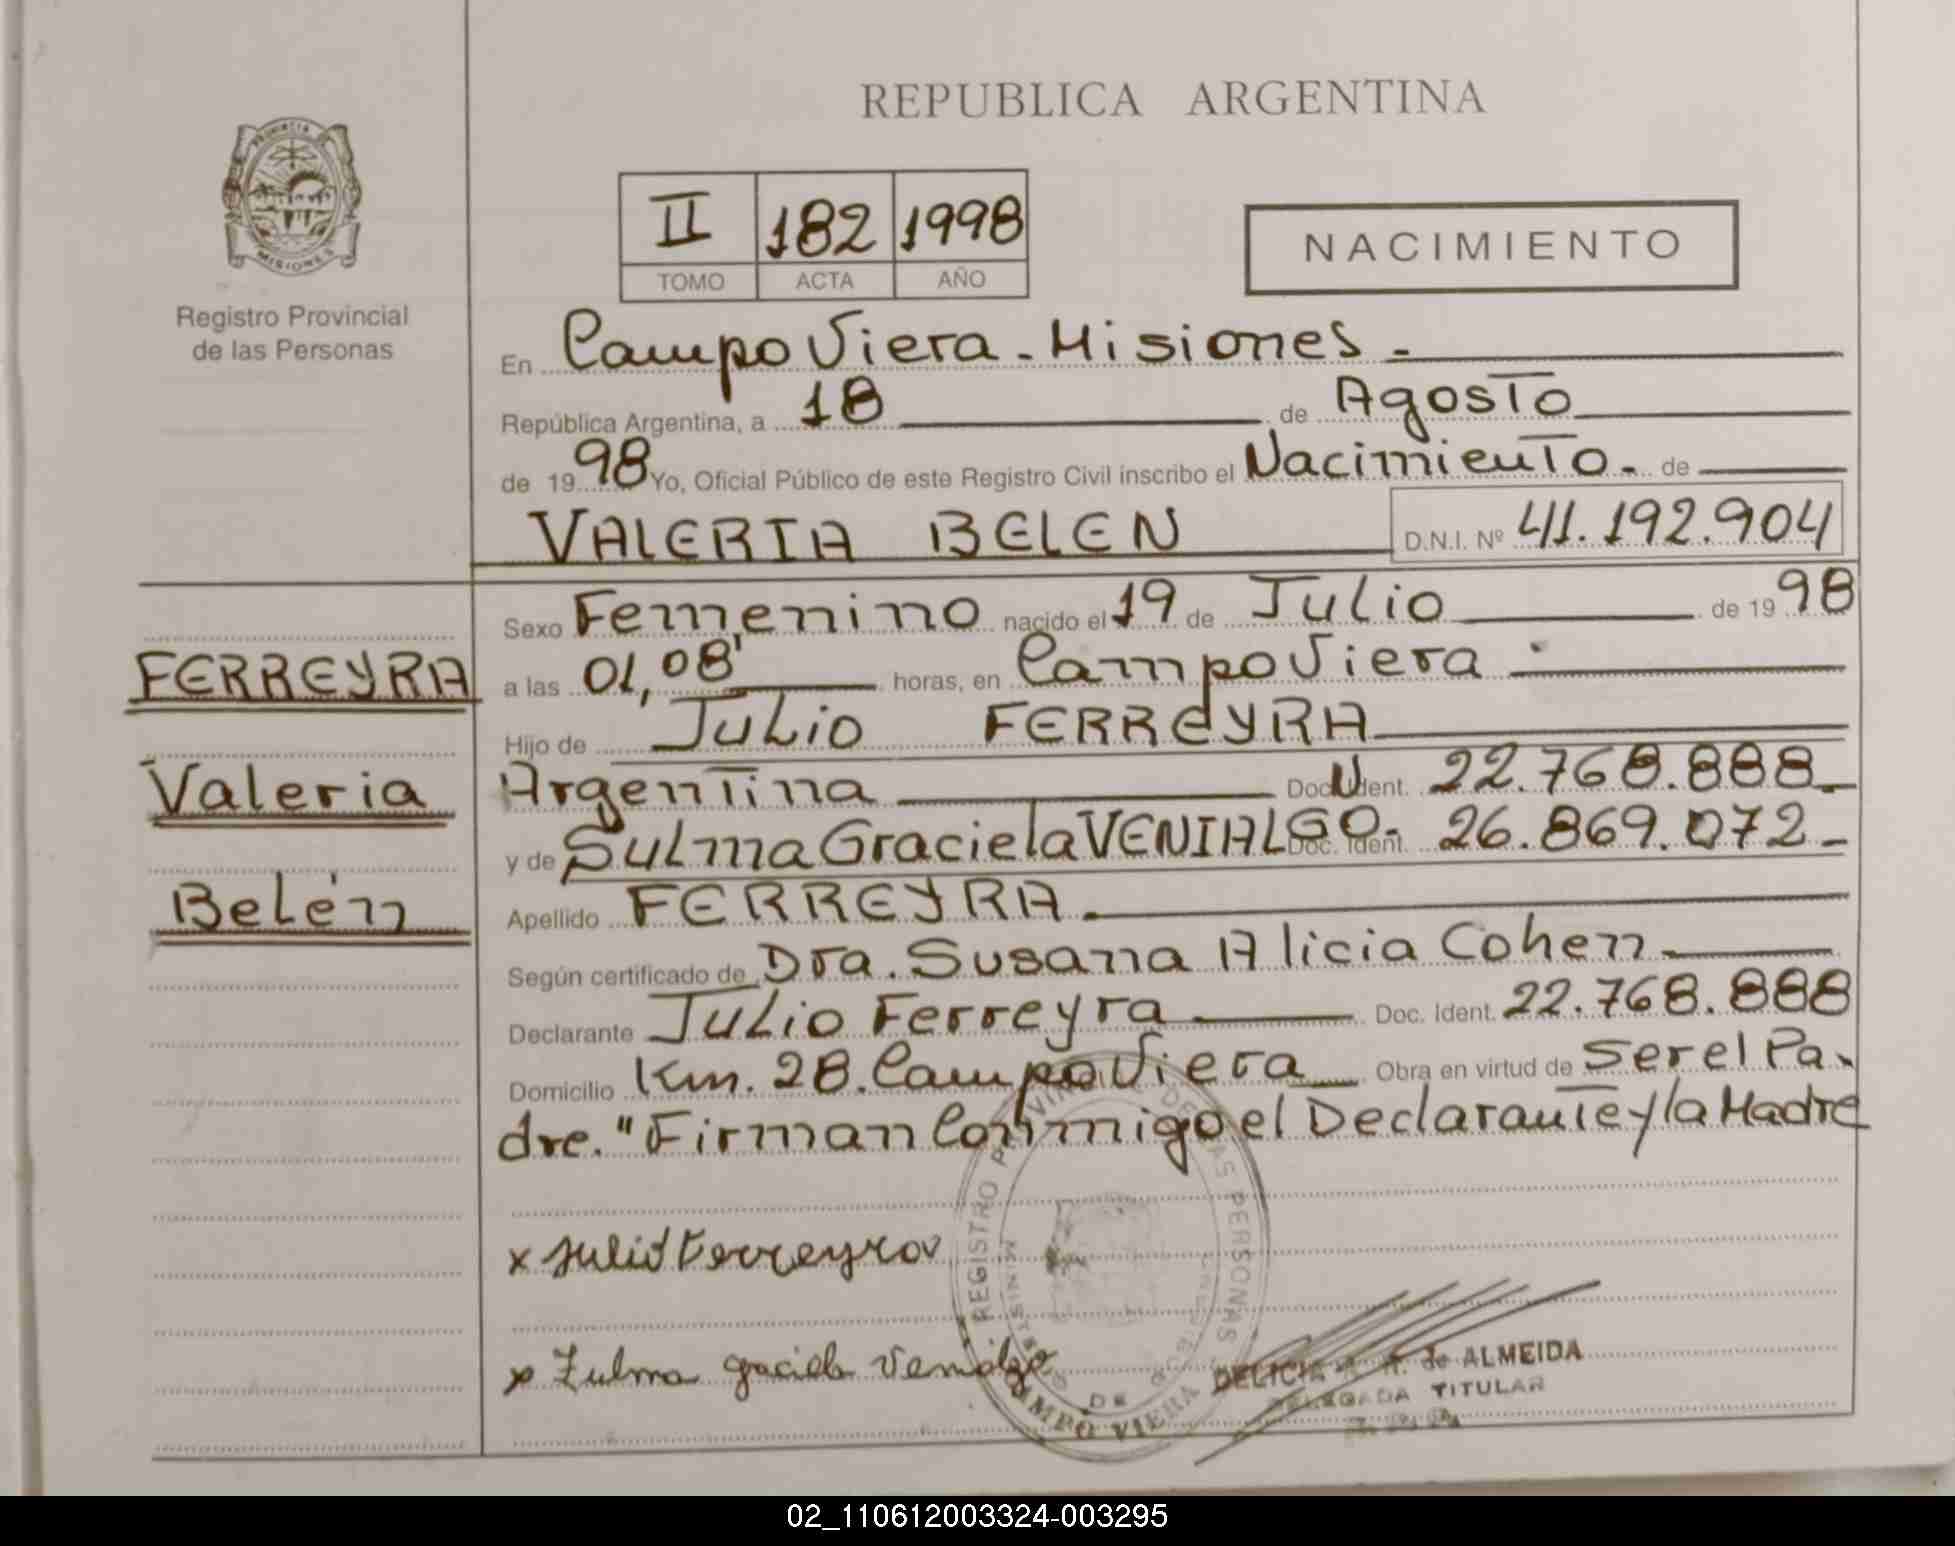 REPUBLICA ARGENTINA
PROVINCIA
MISIONES
Registro Provincial
de las Personas
II 182 1998
TOMO ACTA AÑO
NACIMIENTO
En Campo Viera - Misiones -
República Argentina, a 18 de Agosto
de 1998 Yo, Oficial Público de este Registro Civil inscribo el Nacimiento. de
VALERIA BELEN D.N.I. Nº 41.192.904
Sexo Femenino nacido el 19 de Julio de 1998
FERREYRA
a las 01,08' horas, en Campo Viera
Hijo de Julio FERREYRA
Valeria
Argentina Doc. Ident. 22.768.888
y de Sulma Graciela VENIALGO. Doc. Ident. 26.869.072
Belén
Apellido FERREYRA.
Según certificado de Dra. Susana Alicia Cohen
Declarante Julio Ferreyra Doc. Ident. 22.768.888
Domicilio Km. 28. Campo Viera Obra en virtud de Ser el Pa-
dre. "Firman Conmigo el Declarante y la Madre
x Julio Ferreyra
x Zulma graciela Venialgo
REGISTRO PROVINCIAL DE LAS PERSONAS
CAMPO VIERA
DELICIA de ALMEIDA
DELEGADA TITULAR
02_110612003324-003295